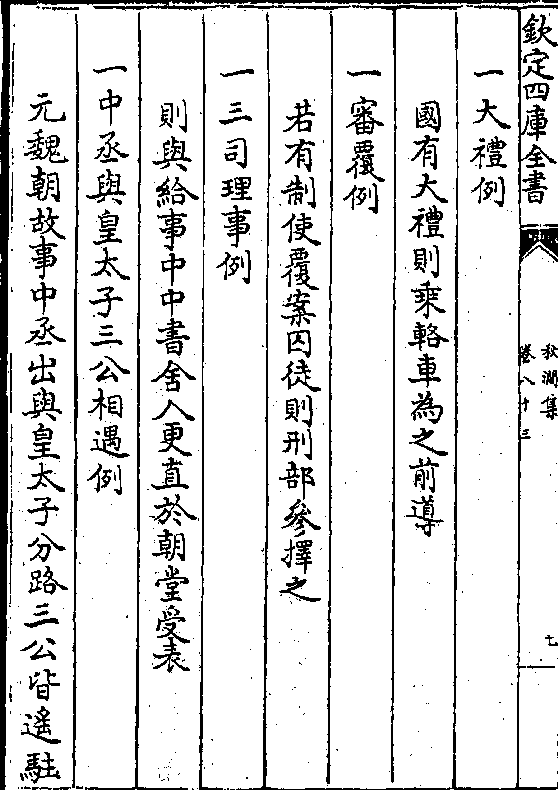 欽定四庫全書
秋澗集
卷八十三
七
一大禮例
國有大禮則乘輅車為之前導
一審覆例
若有制使覆案囚徒則刑部參擇之
一三司理事例
則與給事中中書舍人更直於朝堂受表
一中丞與皇太子三公相遇例
元魏朝故事中丞出與皇太子分路三公皆遙駐